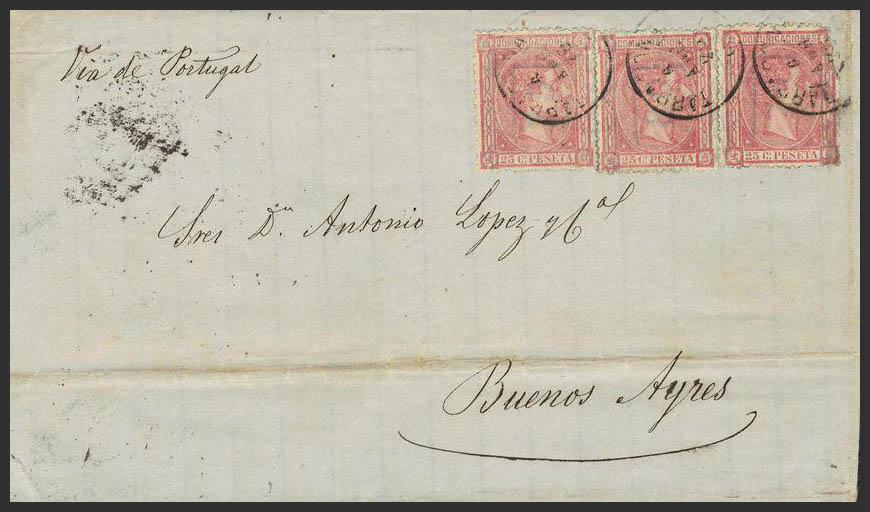 Via de Portugal
COMUNICACIONES
25 C. PESETA
COMUNICACIONES
25 C. PESETA
COMUNICACIONES
25 C. PESETA
Sres Dn Antonio Lopez y Ca
Buenos Ayres